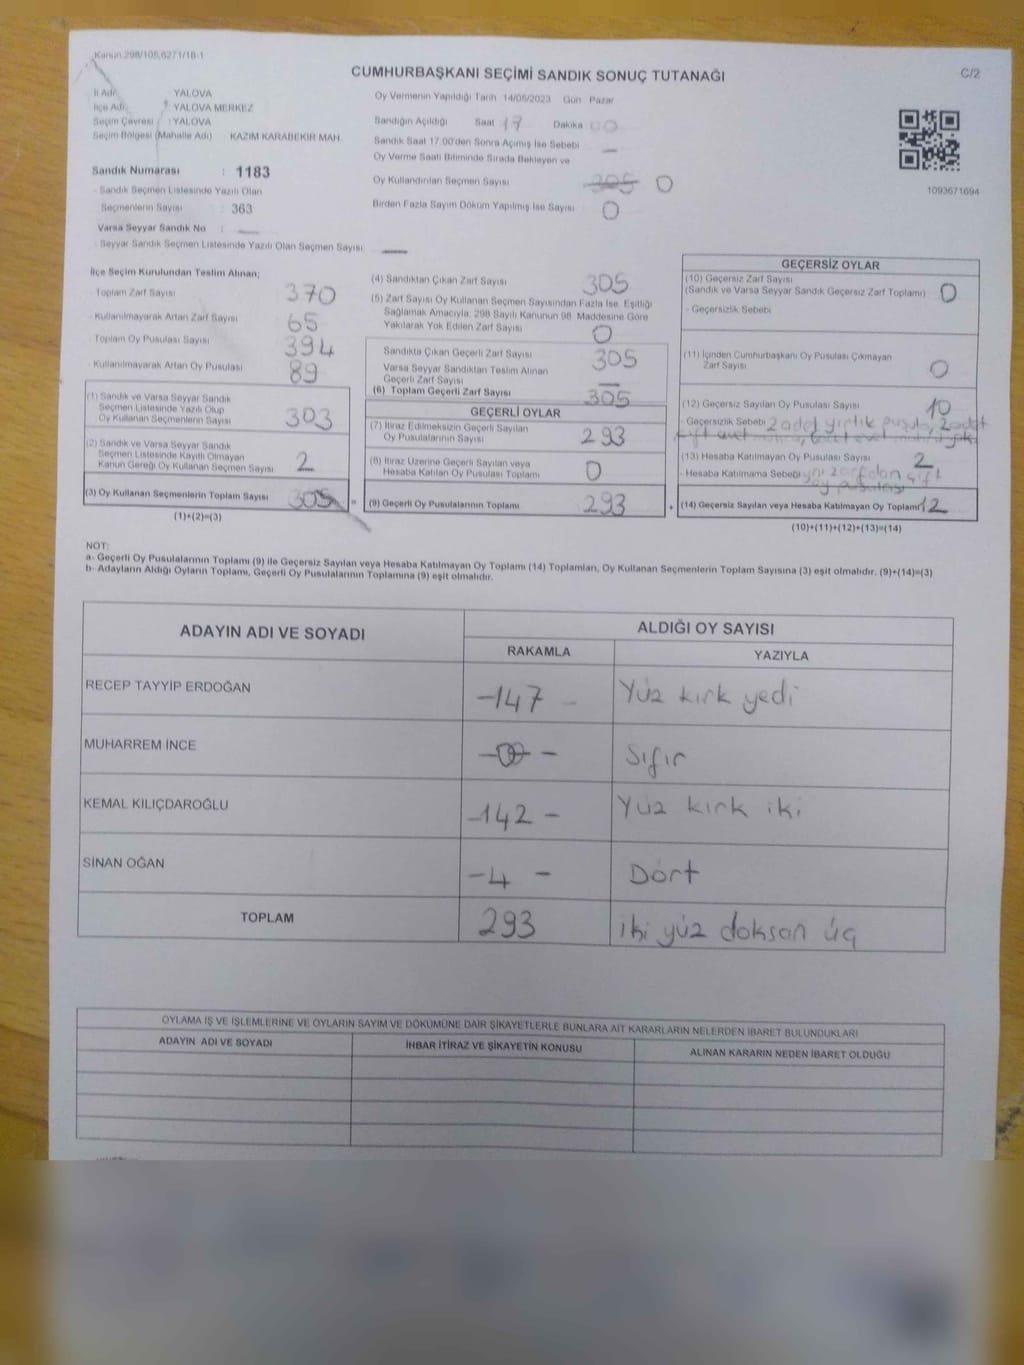 Kanun 298/105,6271/18-1
CUMHURBAŞKANI SEÇİMİ SANDIK SONUÇ TUTANAĞI
C/2
İl Adı : YALOVA
İlçe Adı : YALOVA MERKEZ
Seçim Çevresi : YALOVA
Seçim Bölgesi (Mahalle Adı) KAZIM KARABEKİR MAH.
Sandık Numarası : 1183
- Sandık Seçmen Listesinde Yazılı Olan
Seçmenlerin Sayısı : 363
Varsa Seyyar Sandık No : —
- Seyyar Sandık Seçmen Listesinde Yazılı Olan Seçmen Sayısı : —
Oy Vermenin Yapıldığı Tarih 14/05/2023 Gün Pazar
Sandığın Açıldığı Saat 17 Dakika 00
Sandık Saat 17.00'den Sonra Açılmış İse Sebebi —
Oy Verme Saati Bitiminde Sırada Bekleyen ve
Oy Kullandırılan Seçmen Sayısı 305 0
Birden Fazla Sayım Döküm Yapılmış İse Sayısı 0
1093671694
İlçe Seçim Kurulundan Teslim Alınan;
- Toplam Zarf Sayısı 370
- Kullanılmayarak Artan Zarf Sayısı 65
- Toplam Oy Pusulası Sayısı 394
- Kullanılmayarak Artan Oy Pusulası 89
(1) Sandık ve Varsa Seyyar Sandık
Seçmen Listesinde Yazılı Olup
Oy Kullanan Seçmenlerin Sayısı 303
(2) Sandık ve Varsa Seyyar Sandık
Seçmen Listesinde Kayıtlı Olmayan
Kanun Gereği Oy Kullanan Seçmen Sayısı 2
(3) Oy Kullanan Seçmenlerin Toplam Sayısı 305 =
(1)+(2)=(3)
(4) Sandıktan Çıkan Zarf Sayısı 305
(5) Zarf Sayısı Oy Kullanan Seçmen Sayısından Fazla İse, Eşitliği
Sağlamak Amacıyla, 298 Sayılı Kanunun 98. Maddesine Göre
Yakılarak Yok Edilen Zarf Sayısı 0
Sandıkta Çıkan Geçerli Zarf Sayısı 305
Varsa Seyyar Sandıktan Teslim Alınan
Geçerli Zarf Sayısı —
(6) Toplam Geçerli Zarf Sayısı 305
GEÇERLİ OYLAR
(7) İtiraz Edilmeksizin Geçerli Sayılan
Oy Pusulalarının Sayısı 293
(8) İtiraz Üzerine Geçerli Sayılan veya
Hesaba Katılan Oy Pusulası Toplamı 0
(9) Geçerli Oy Pusulalarının Toplamı 293 +
GEÇERSİZ OYLAR
(10) Geçersiz Zarf Sayısı
(Sandık ve Varsa Seyyar Sandık Geçersiz Zarf Toplamı) 0
- Geçersizlik Sebebi
(11) İçinden Cumhurbaşkanı Oy Pusulası Çıkmayan
Zarf Sayısı 0
(12) Geçersiz Sayılan Oy Pusulası Sayısı 10
- Geçersizlik Sebebi 2 adet yırtık pusula, 2 adet
çift evet
(13) Hesaba Katılmayan Oy Pusulası Sayısı 2
- Hesaba Katılmama Sebebi aynı zarfdan çift
oy pusulası
(14) Geçersiz Sayılan veya Hesaba Katılmayan Oy Toplamı 12
(10)+(11)+(12)+(13)=(14)
NOT:
a- Geçerli Oy Pusulalarının Toplamı (9) ile Geçersiz Sayılan veya Hesaba Katılmayan Oy Toplamı (14) Toplamları, Oy Kullanan Seçmenlerin Toplam Sayısına (3) eşit olmalıdır. (9)+(14)=(3)
b- Adayların Aldığı Oyların Toplamı, Geçerli Oy Pusulalarının Toplamına (9) eşit olmalıdır.
ADAYIN ADI VE SOYADI
ALDIĞI OY SAYISI
RAKAMLA YAZIYLA
RECEP TAYYİP ERDOĞAN -147- Yüz kırk yedi
MUHARREM İNCE -0- Sıfır
KEMAL KILIÇDAROĞLU -142- Yüz kırk iki
SİNAN OĞAN -4- Dört
TOPLAM 293 iki yüz doksan üç
OYLAMA İŞ VE İŞLEMLERİNE VE OYLARIN SAYIM VE DÖKÜMÜNE DAİR ŞİKAYETLERLE BUNLARA AİT KARARLARIN NELERDEN İBARET BULUNDUKLARI
ADAYIN ADI VE SOYADI İHBAR İTİRAZ VE ŞİKAYETİN KONUSU ALINAN KARARIN NEDEN İBARET OLDUĞU